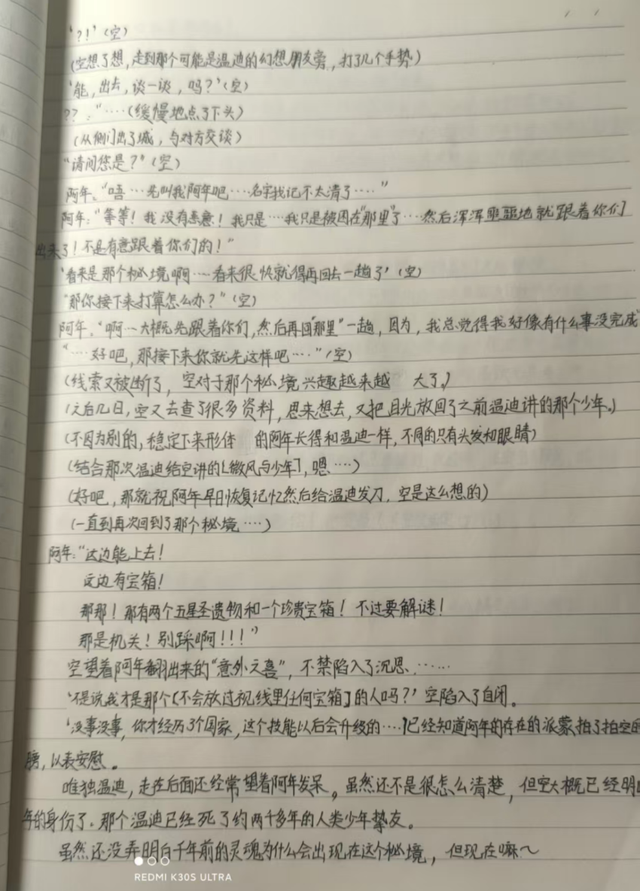 '?!'(空)
(空想了想,走到那个可能是温迪的幻想朋友旁,打了几个手势)
'能,出去,谈一谈,吗?'(空)
??:"……(缓慢地点了下头)
(从侧门出了城,与对方交谈)
"请问您是?"(空)
阿年:"唔…先叫我阿年吧…名字我记不太清了……"
阿年:"等等!我没有恶意!我只是…我只是被困在"那里"了…然后浑浑噩噩地就跟着你们
出来了!不是有意跟着你们的!"
'看来是那个秘境啊…看来很快就得再回去一趟了'(空)
"那你接下来打算怎么办?"(空)
阿年:"啊…大概先跟着你们,然后再回"那里"一趟,因为,我总觉得我好像有什么事没完成"
"…好吧,那接下来你就先这样吧…"(空)
(线索又被断了,空对于那个秘境兴趣越来越 大了。)
(之后几日,空又去查了很多资料,思来想去,又把目光放回了之前温迪讲的那个少年。)
(不因为别的,稳定下来形体 的阿年长得和温迪一样,不同的只有头发和眼睛)
(结合那次温迪给空讲的[微风与少年],嗯……)
(好吧,那就祝阿年早日恢复记忆然后给温迪发刀,空是这么想的)
(一直到再次回到了那个秘境……)
阿年:"这边能上去!
这边有宝箱!
那那!那有两个五星圣遗物和一个珍贵宝箱!不过要解谜!
那是机关!别踩啊!!!"
空望着阿年翻出来的"意外之喜",不禁陷入了沉思……
'不是说我才是那个[不会放过视线里任何宝箱]的人吗?'空陷入了自闭。
'没事没事,你才经历3个国家,这个技能以后会升级的……'已经知道阿年的存在的派蒙拍了拍空的
膀,以表安慰。
唯独温迪,走在后面还经常望着阿年发呆。虽然还不是很怎么清楚,但空大概已经明
年的身份了。那个温迪已经死了约两千多年的人类少年挚友。
虽然还没弄明白千年前的灵魂为什么会出现在这个秘境,但现在嘛~
REDMI K30S ULTRA